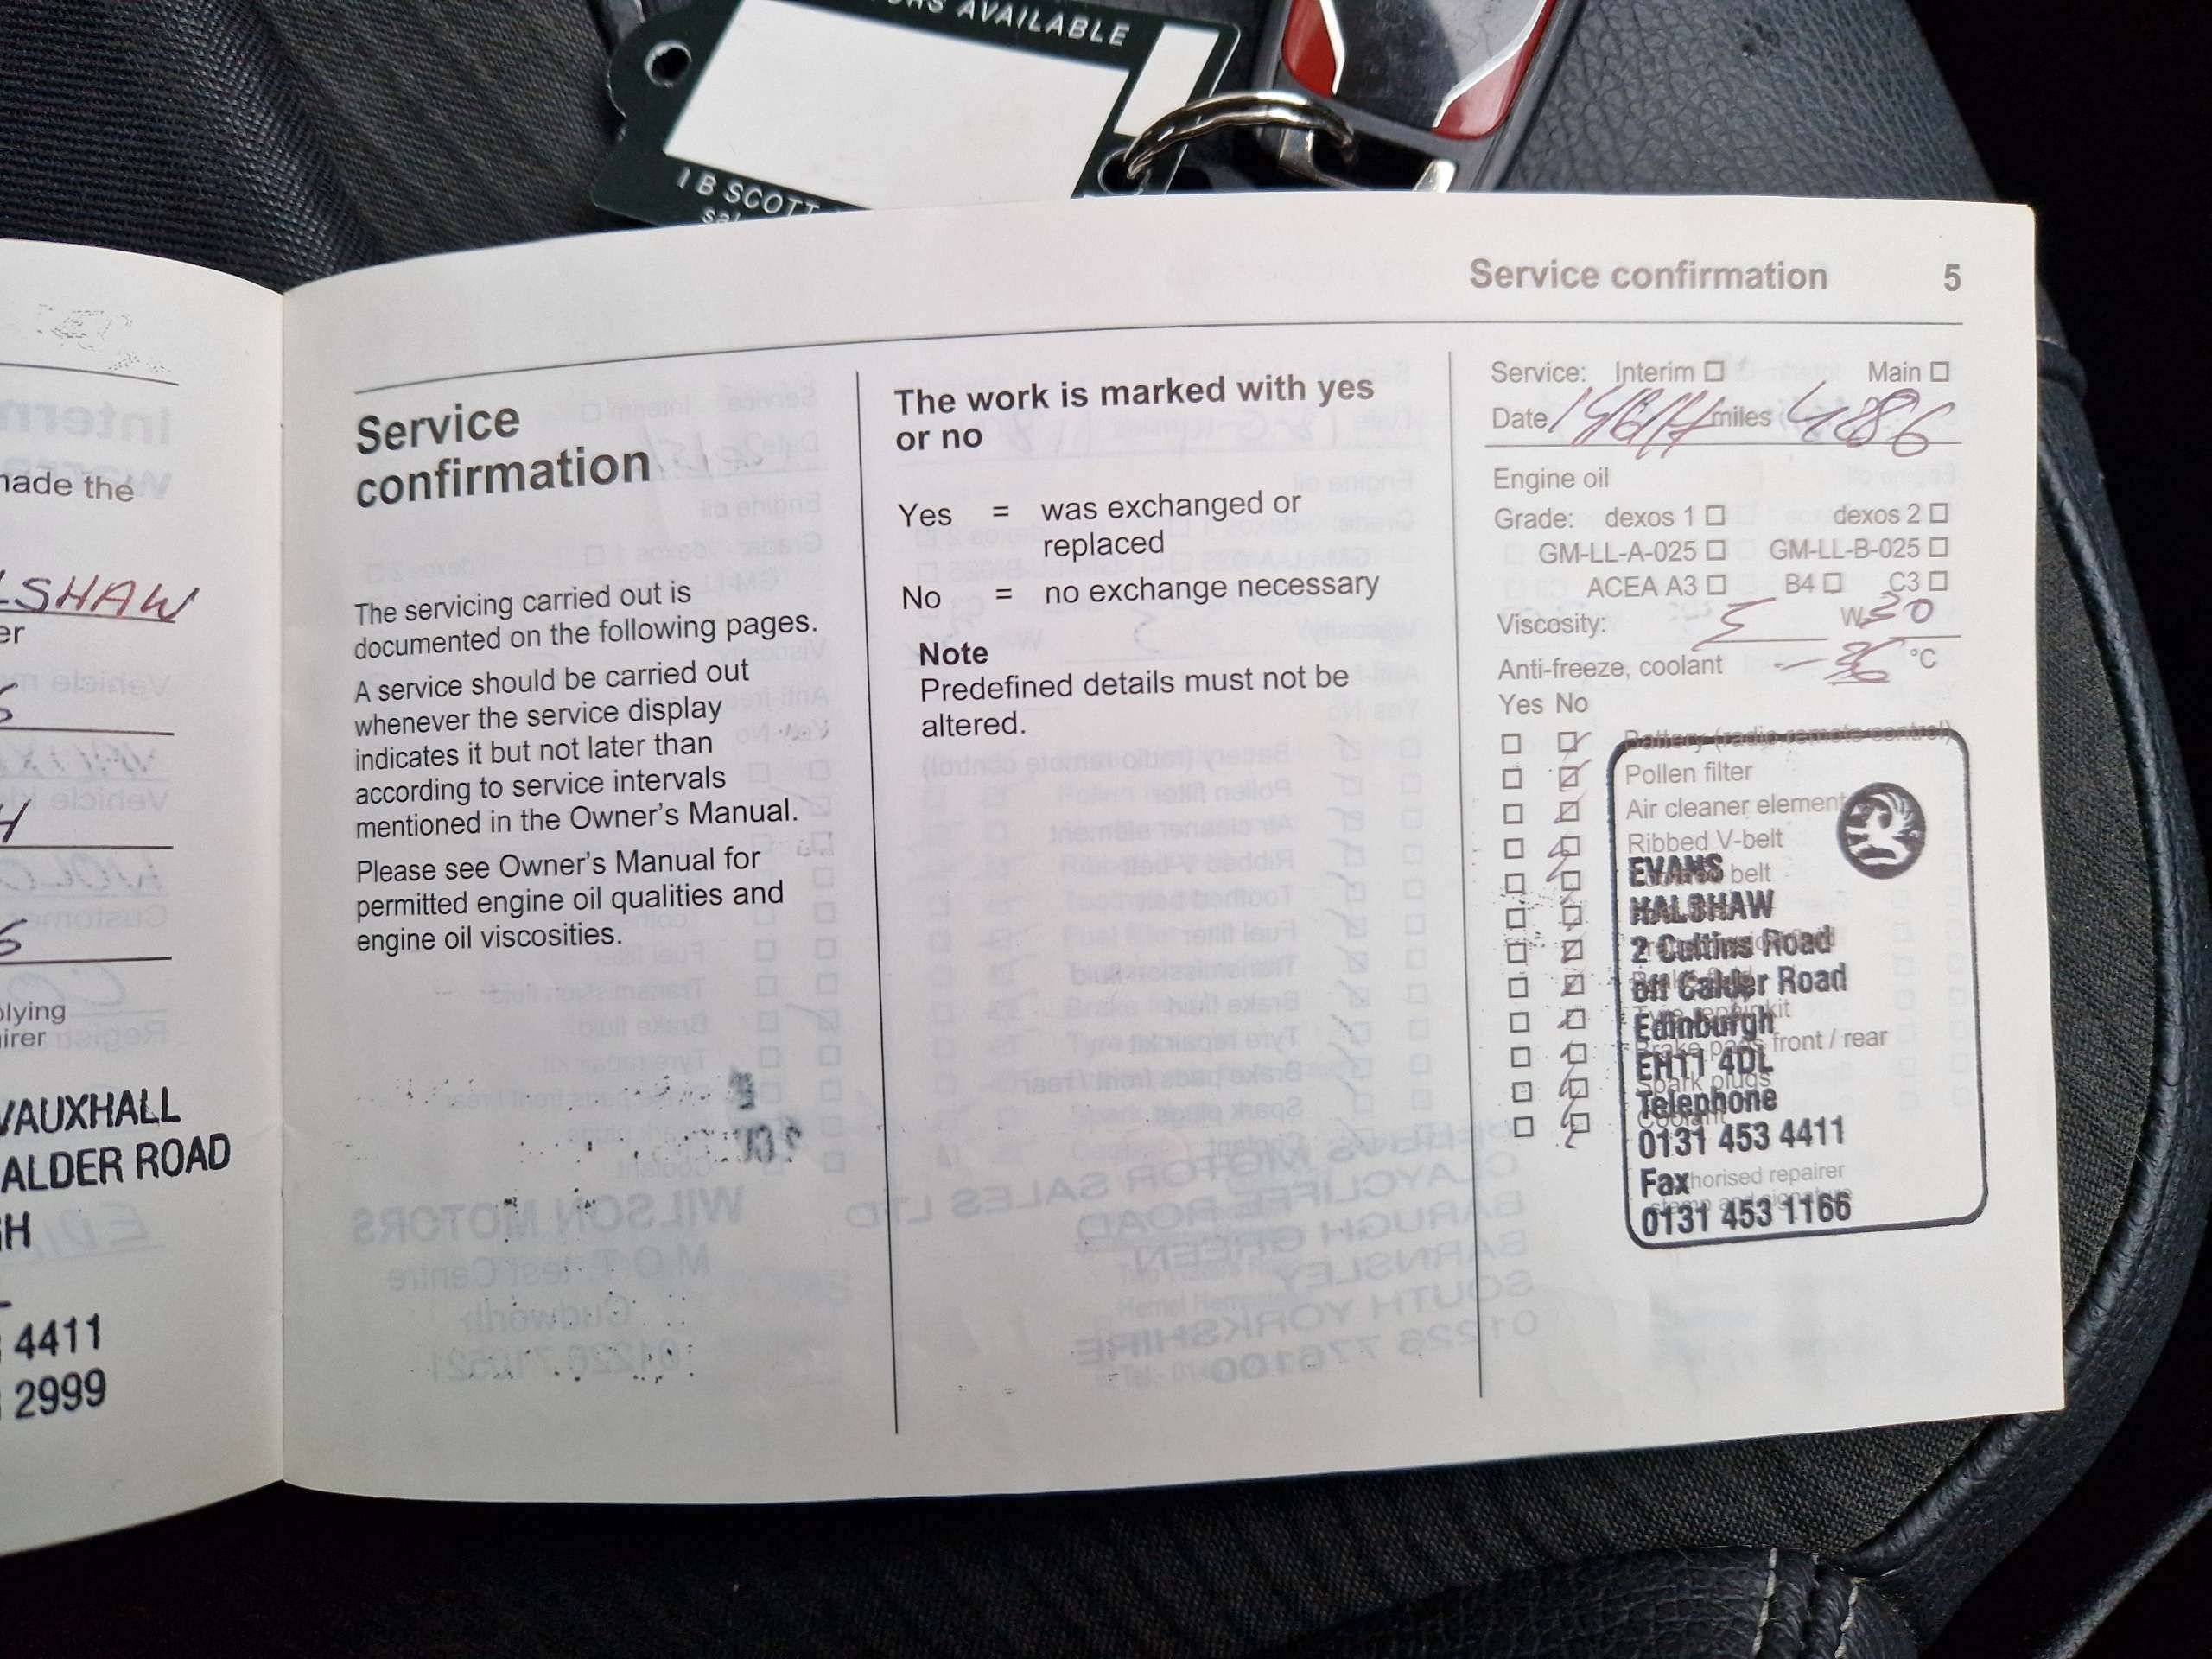 AVAILABLE
I B SCOTT
Service confirmation 5
made the
SHAW
er
lying
irer
VAUXHALL
ALDER ROAD
H
4411
2999
Service
confirmation
The servicing carried out is
documented on the following pages.
A service should be carried out
whenever the service display
indicates it but not later than
according to service intervals
mentioned in the Owner's Manual.
Please see Owner's Manual for
permitted engine oil qualities and
engine oil viscosities.
The work is marked with yes
or no
Yes = was exchanged or
replaced
No = no exchange necessary
Note
Predefined details must not be
altered.
Service: Interim Main
Date miles
Engine oil
Grade: dexos 1 dexos 2
GM-LL-A-025 GM-LL-B-025
ACEA A3 B4 C3
Viscosity: 5 W 30
Anti-freeze, coolant -36 °C
Yes No
Battery (radio remote control)
Pollen filter
Air cleaner element
Ribbed V-belt
EVANS belt
HALSHAW
2 Cultins Road
off Calder Road
Edinburgh
Brake pads front / rear
EH11 4DL
Spark plugs
Telephone
Coolant
0131 453 4411
Fax
0131 453 1166